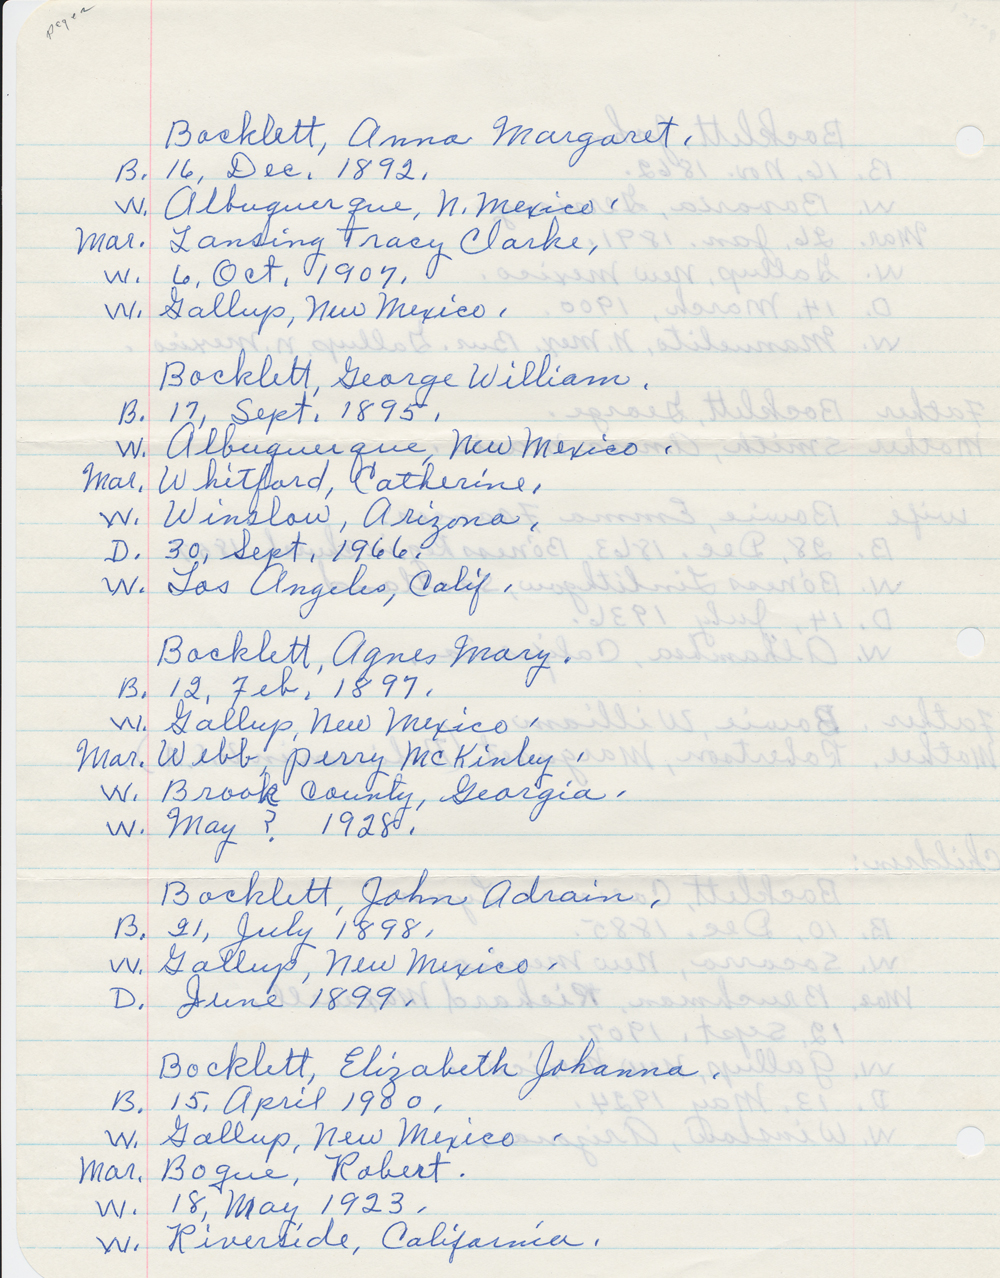 Bocklett, Anna Margaret.
B. 16, Dec. 1892.
W. Albuquerque, N. Mexico.
Mar. Lansing Tracy Clarke,
W. 6, Oct, 1907.
W. Gallup, New Mexico.
Bocklett, George William.
B. 17, Sept. 1895.
W. Albuquerque, New Mexico.
Mar. Whitford, Catherine,
W. Winslow, Arizona,
D. 30, Sept. 1966.
W. Los Angeles, Calif.
Bocklett, Agnes Mary.
B. 12, Feb, 1897.
W. Gallup, New Mexico.
Mar. Webb, Perry McKinley.
W. Brook County, Georgia.
W. May ? 1928.
Bocklett, John Adrain,
B. 21, July 1898,
W. Gallup, New Mexico.
D. June 1899.
Bocklett, Elizabeth Johanna.
B. 15, April 1900,
W. Gallup, New Mexico.
Mar. Bogue, Robert.
W. 18, May 1923,
W. Riverside, California.